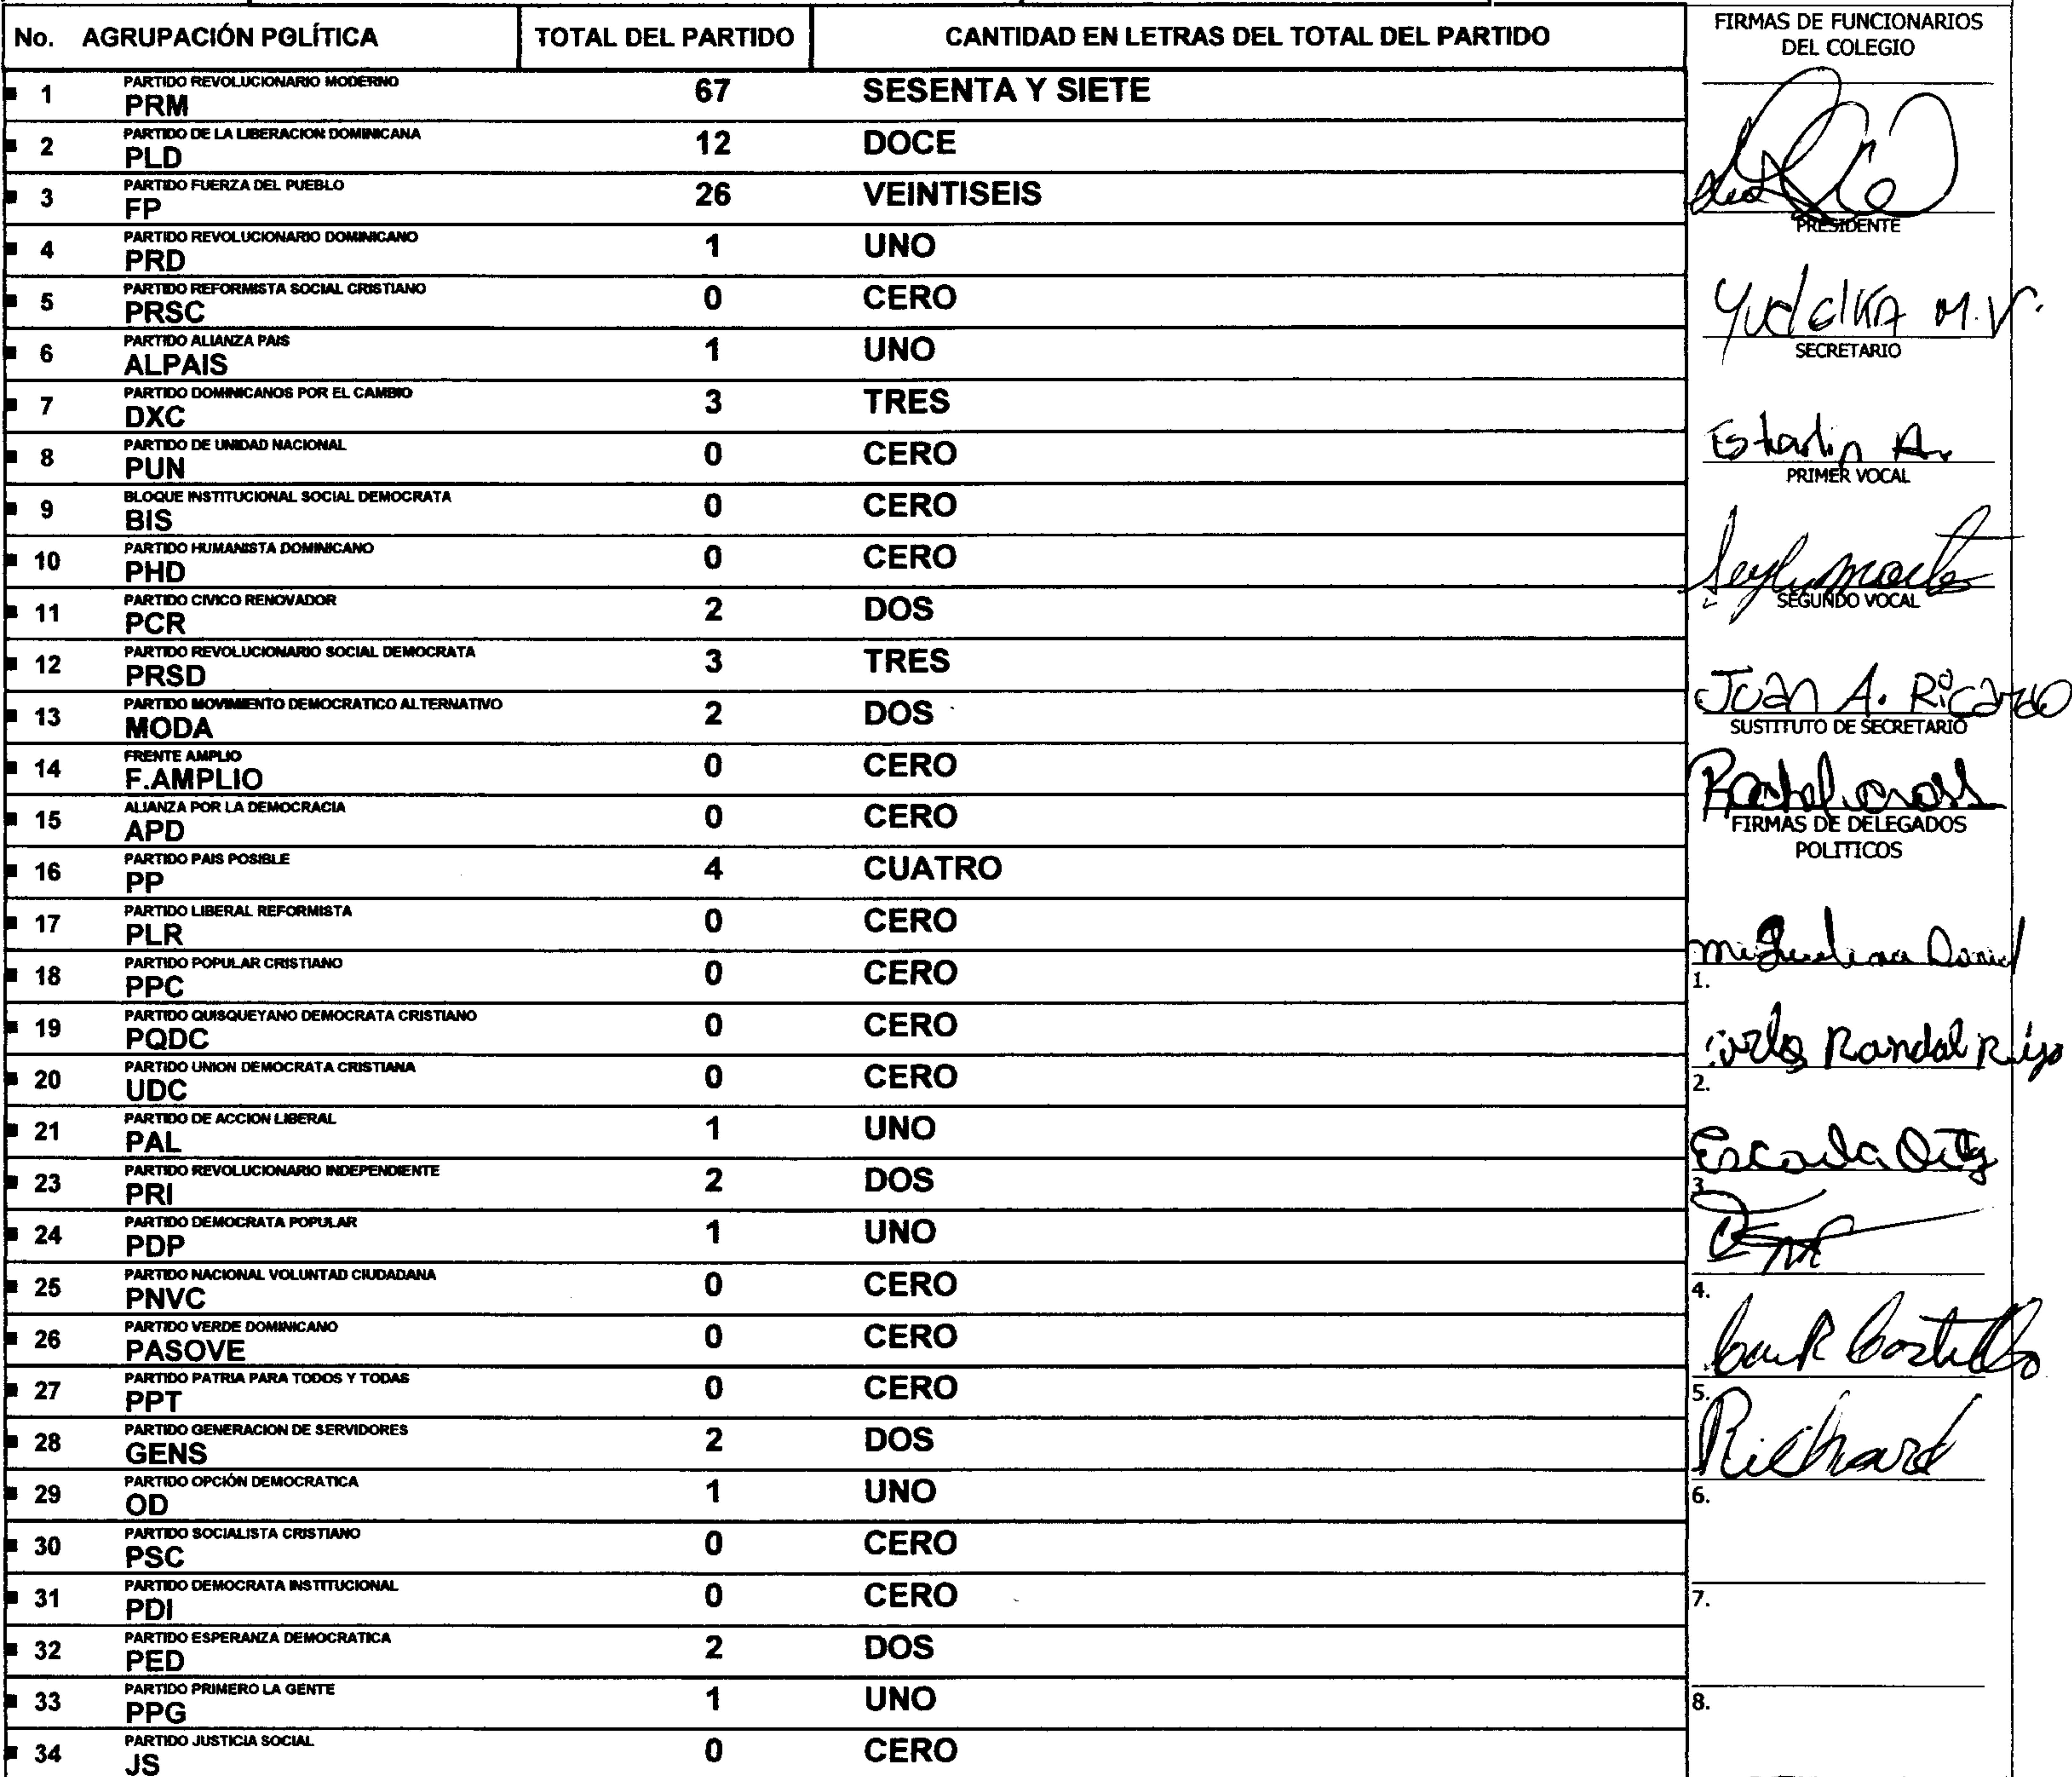 No. AGRUPACIÓN POLÍTICA TOTAL DEL PARTIDO CANTIDAD EN LETRAS DEL TOTAL DEL PARTIDO
PARTIDO REVOLUCIONARIO MODERNO
1 PRM 67 SESENTA Y SIETE
PARTIDO DE LA LIBERACION DOMINICANA
2 PLD 12 DOCE
PARTIDO FUERZA DEL PUEBLO
3 FP 26 VEINTISEIS
PARTIDO REVOLUCIONARIO DOMINICANO
4 PRD 1 UNO
PARTIDO REFORMISTA SOCIAL CRISTIANO
5 PRSC 0 CERO
PARTIDO ALIANZA PAIS
6 ALPAIS 1 UNO
PARTIDO DOMINICANOS POR EL CAMBIO
7 DXC 3 TRES
PARTIDO DE UNIDAD NACIONAL
8 PUN 0 CERO
BLOQUE INSTITUCIONAL SOCIAL DEMOCRATA
9 BIS 0 CERO
PARTIDO HUMANISTA DOMINICANO
10 PHD 0 CERO
PARTIDO CIVICO RENOVADOR
11 PCR 2 DOS
PARTIDO REVOLUCIONARIO SOCIAL DEMOCRATA
12 PRSD 3 TRES
PARTIDO MOVIMIENTO DEMOCRATICO ALTERNATIVO
13 MODA 2 DOS
FRENTE AMPLIO
14 F.AMPLIO 0 CERO
ALIANZA POR LA DEMOCRACIA
15 APD 0 CERO
PARTIDO PAIS POSIBLE
16 PP 4 CUATRO
PARTIDO LIBERAL REFORMISTA
17 PLR 0 CERO
PARTIDO POPULAR CRISTIANO
18 PPC 0 CERO
PARTIDO QUISQUEYANO DEMOCRATA CRISTIANO
19 PQDC 0 CERO
PARTIDO UNION DEMOCRATA CRISTIANA
20 UDC 0 CERO
PARTIDO DE ACCION LIBERAL
21 PAL 1 UNO
PARTIDO REVOLUCIONARIO INDEPENDIENTE
23 PRI 2 DOS
PARTIDO DEMOCRATA POPULAR
24 PDP 1 UNO
PARTIDO NACIONAL VOLUNTAD CIUDADANA
25 PNVC 0 CERO
PARTIDO VERDE DOMINICANO
26 PASOVE 0 CERO
PARTIDO PATRIA PARA TODOS Y TODAS
27 PPT 0 CERO
PARTIDO GENERACION DE SERVIDORES
28 GENS 2 DOS
PARTIDO OPCIÓN DEMOCRATICA
29 OD 1 UNO
PARTIDO SOCIALISTA CRISTIANO
30 PSC 0 CERO
PARTIDO DEMOCRATA INSTITUCIONAL
31 PDI 0 CERO
PARTIDO ESPERANZA DEMOCRATICA
32 PED 2 DOS
PARTIDO PRIMERO LA GENTE
33 PPG 1 UNO
PARTIDO JUSTICIA SOCIAL
34 JS 0 CERO
FIRMAS DE FUNCIONARIOS
DEL COLEGIO
PRESIDENTE
Yudelka M.V.
SECRETARIO
Estarlin A.
PRIMER VOCAL
SEGUNDO VOCAL
Juan A. Ricardo
SUSTITUTO DE SECRETARIO
FIRMAS DE DELEGADOS
POLITICOS
Miguelina Daniel
1.
Randal
2.
3.
4.
Castillo
5.
Richard
6.
7.
8.